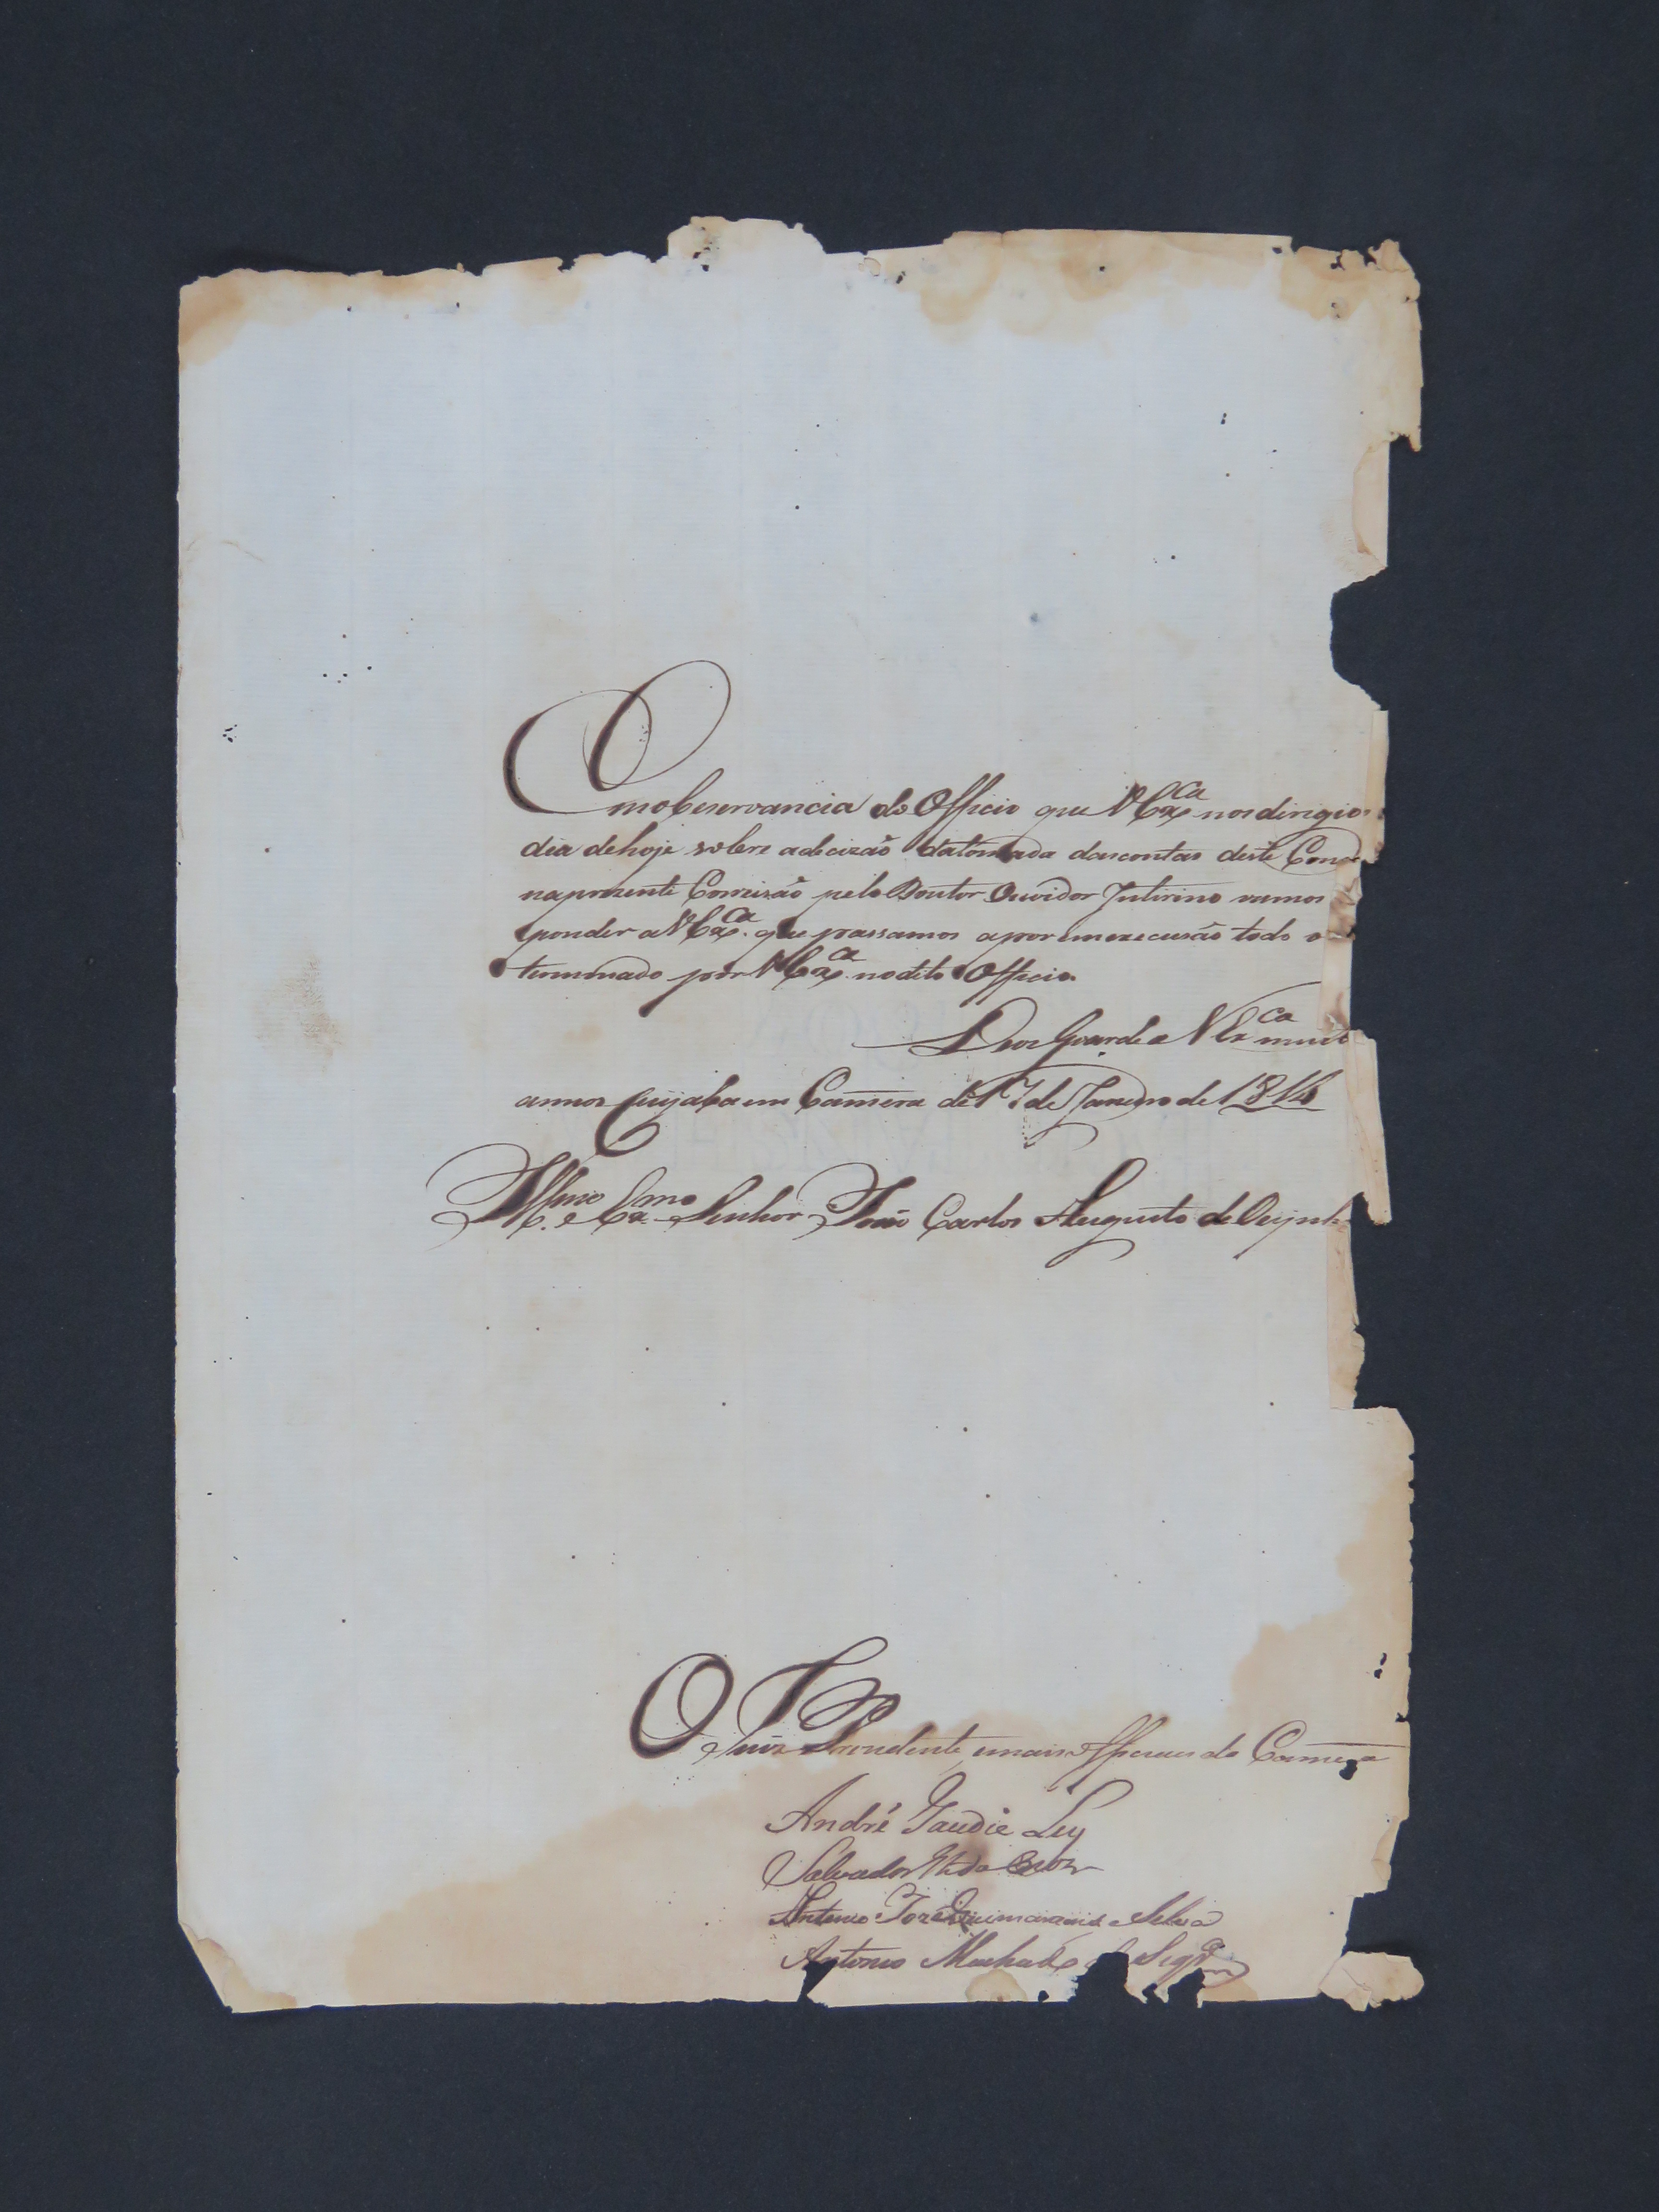 Emobservancia do Officio que VExª nos dirigio
dia dehoje sobre adecizaõ datomada dascontas deste Conc
naprezente Correisaõ pelo Doutor Ouvidor Interino vamos
ponder a VExª que passamos apor emexecusaõ todo o
terminado por VExª nodito Officio.
Deos Guarde a VExcª muit
annos Cuyaba em Camera de 17 de Janeiro de 1814
Illmo e Exmo Senhor Joaõ Carlos Augusto de Oeynh
O Juiz Prezidente, emais Officiaes da Camera
André Gaudie Ley
Salvador
Antonio Jozé Guimaraens e Silva
Antonio Machado